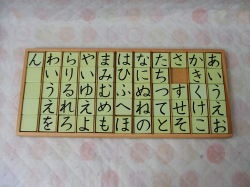 あいうえお
かきくけこ
さ すせそ
たちつてと
なにぬねの
はひふへほ
まみむめも
やいゆえよ
らりるれろ
わいうえを
ん